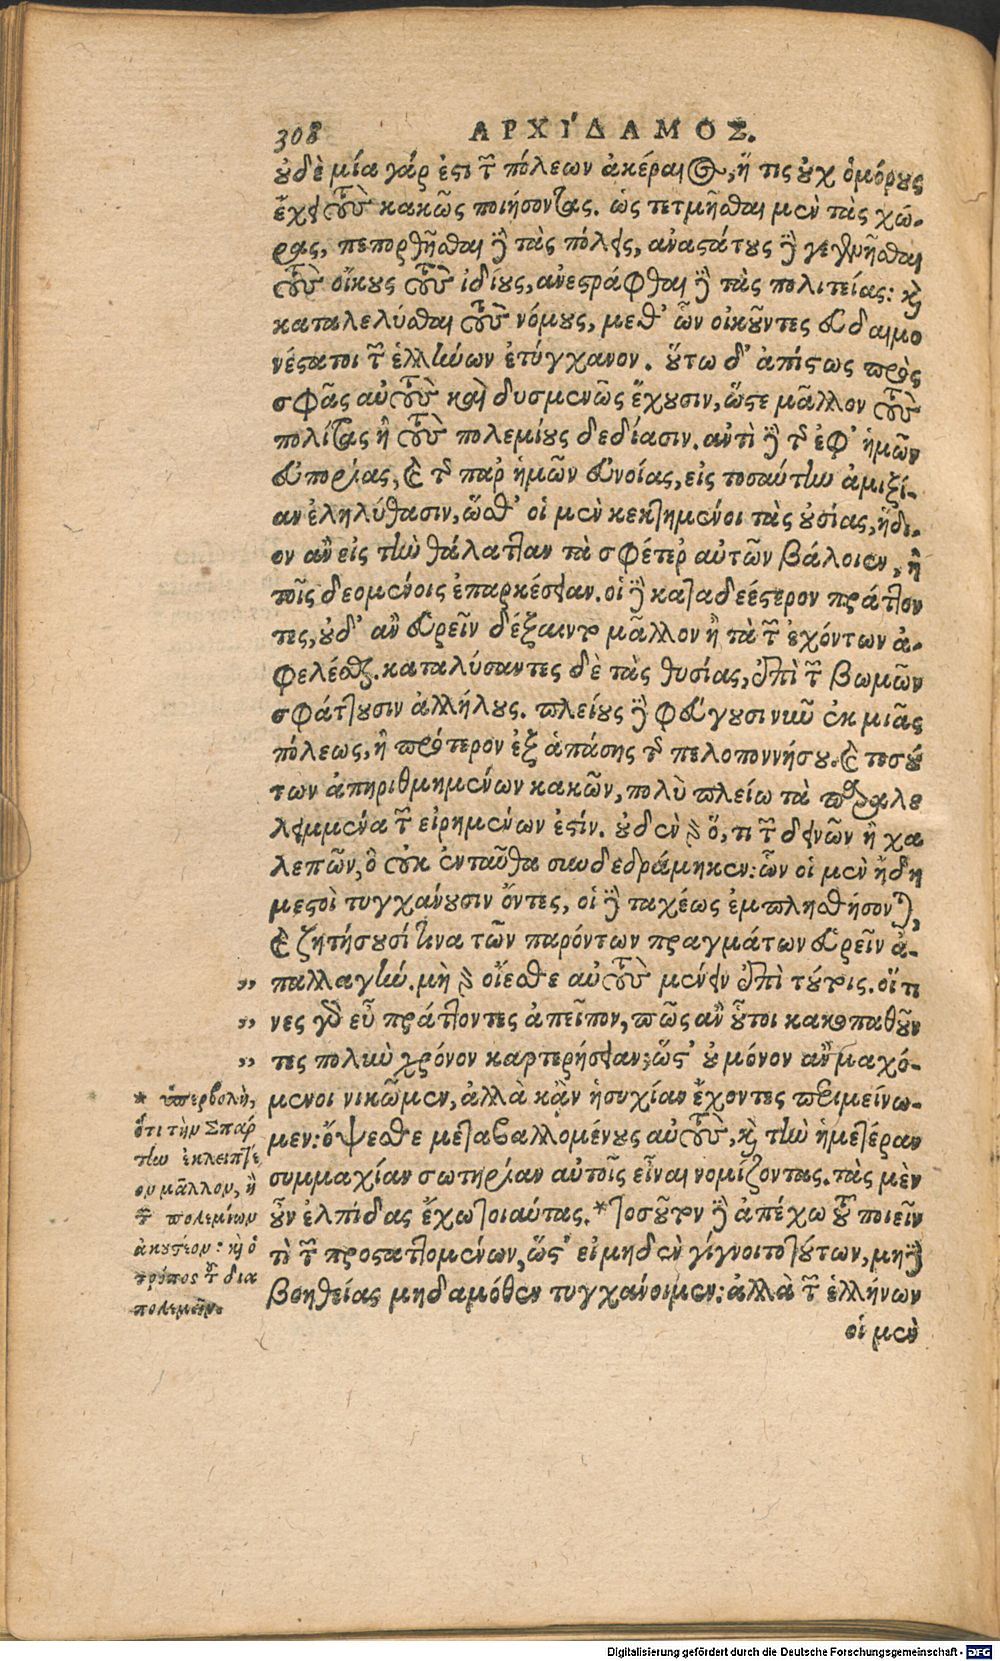 308 ΑΡΧΙΔΑΜΟΣ.
οὐδὲ μία γάρ ἐστι τῶν πόλεων ἀκέραιος, ἥ τις οὐχ ὁμόρους
ἔχει τοὺς κακῶς ποιήσοντας. ὡς τετμῆσθαι μὲν τὰς χώ-
ρας, πεπορθῆσθαι δὲ τὰς πόλεις, ἀναστάτους δὲ γεγενῆσθαι
τοὺς οἴκους τοὺς ἰδίους, ἀνεστράφθαι δὲ τὰς πολιτείας: καὶ
καταλελύσθαι τοὺς νόμους, μεθ’ ὧν οἰκοῦντες εὐδαιμο
νέστατοι τῶν ἑλλήνων ἐτύγχανον. οὕτω δ’ ἀπίστως πρὸς
σφᾶς αὐτοὺς καὶ δυσμενῶς ἔχουσιν, ὥστε μᾶλλον τοὺς
πολίτας ἢ τοὺς πολεμίους δεδίασιν. ἀντὶ δὲ τῆς ἐφ’ ἡμῶν
εὐπορίας, καὶ τῆς παρ’ ἡμῶν εὐνοίας, εἰς τοσαύτην ἀμιξί-
αν ἐληλύθασιν, ὥσθ’ οἱ μὲν κεκτημένοι τὰς οὐσίας, ἥδι-
ον ἂν εἰς τὴν θάλατταν τὰ σφέτερ’ αὐτῶν βάλοιεν, ἢ
τοῖς δεομένοις ἐπαρκέσειαν. οἱ δὲ καταδεέστερον πράττον
τες, οὐδ’ ἂν εὑρεῖν δέξαιντο μᾶλλον ἢ τὰ τῶν ἐχόντων ἀ-
φελέσθαι. καταλύσαντες δὲ τὰς θυσίας, ἐπὶ τῶν βωμῶν
σφάττουσιν ἀλλήλους. πλείους δὲ φεύγουσι νῦν ἐκ μιᾶς
πόλεως, ἢ πρότερον ἐξ ἁπάσης τῆς πελοποννήσου. καὶ τοσού
των ἀπηριθμημένων κακῶν, πολὺ πλείω τὰ παραλε
λειμμένα τῶν εἰρημένων ἐστίν. οὐδὲν γὰρ ὅ, τι τῶν δεινῶν ἢ χα
λεπῶν, ὃ οὐκ ἐνταῦθα συνδεδράμηκεν: ὧν οἱ μὲν ἤδη
μεστοὶ τυγχάνουσιν ὄντες, οἱ δὲ ταχέως ἐμπλησθήσονται,
καὶ ζητήσουσί τινα τῶν παρόντων πραγμάτων εὑρεῖν ἀ-
„ παλλαγήν. μὴ γὰρ οἴεσθε αὐτοὺς μένειν ἐπὶ τούτοις. οἵ τι
„ νες γὰρ εὖ πράττοντες ἀπεῖπον, πῶς ἂν οὗτοι κακοπαθοῦν
„ τες πολὺν χρόνον καρτερήσειαν; ὥστ’ οὐ μόνον ἂν μαχό-
μενοι νικῶμεν, ἀλλὰ κἂν ἡσυχίαν ἔχοντες περιμείνω-
μεν: ὄψεσθε μεταβαλλομένους αὐτοὺς, καὶ τὴν ἡμετέραν
συμμαχίαν σωτηρίαν αὐτοῖς εἶναι νομίζοντας. τὰς μὲν
οὖν ἐλπίδας ἔχω τοιαύτας. *τοσοῦτον δὲ ἀπέχω τοῦ ποιεῖν
τὶ τῶν προσταττομένων, ὥστ’ εἰ μηδὲν γίγνοιτο τούτων, μηδὲ
βοηθείας μηδαμόθεν τυγχάνοιμεν: ἀλλὰ τῶν ἑλλήνων
οἱ μὲν
* ὑπερβολὴ,
ὅτι τὴν Σπάρ
την ἐκλειπτέ
ον μᾶλλον, ἢ
τῶν πολεμίων
ἀκουστέον: καὶ ὁ
τρόπος τοῦ δια
πολεμεῖν.
Digitalisierung gefördert durch die Deutsche Forschungsgemeinschaft - DFG